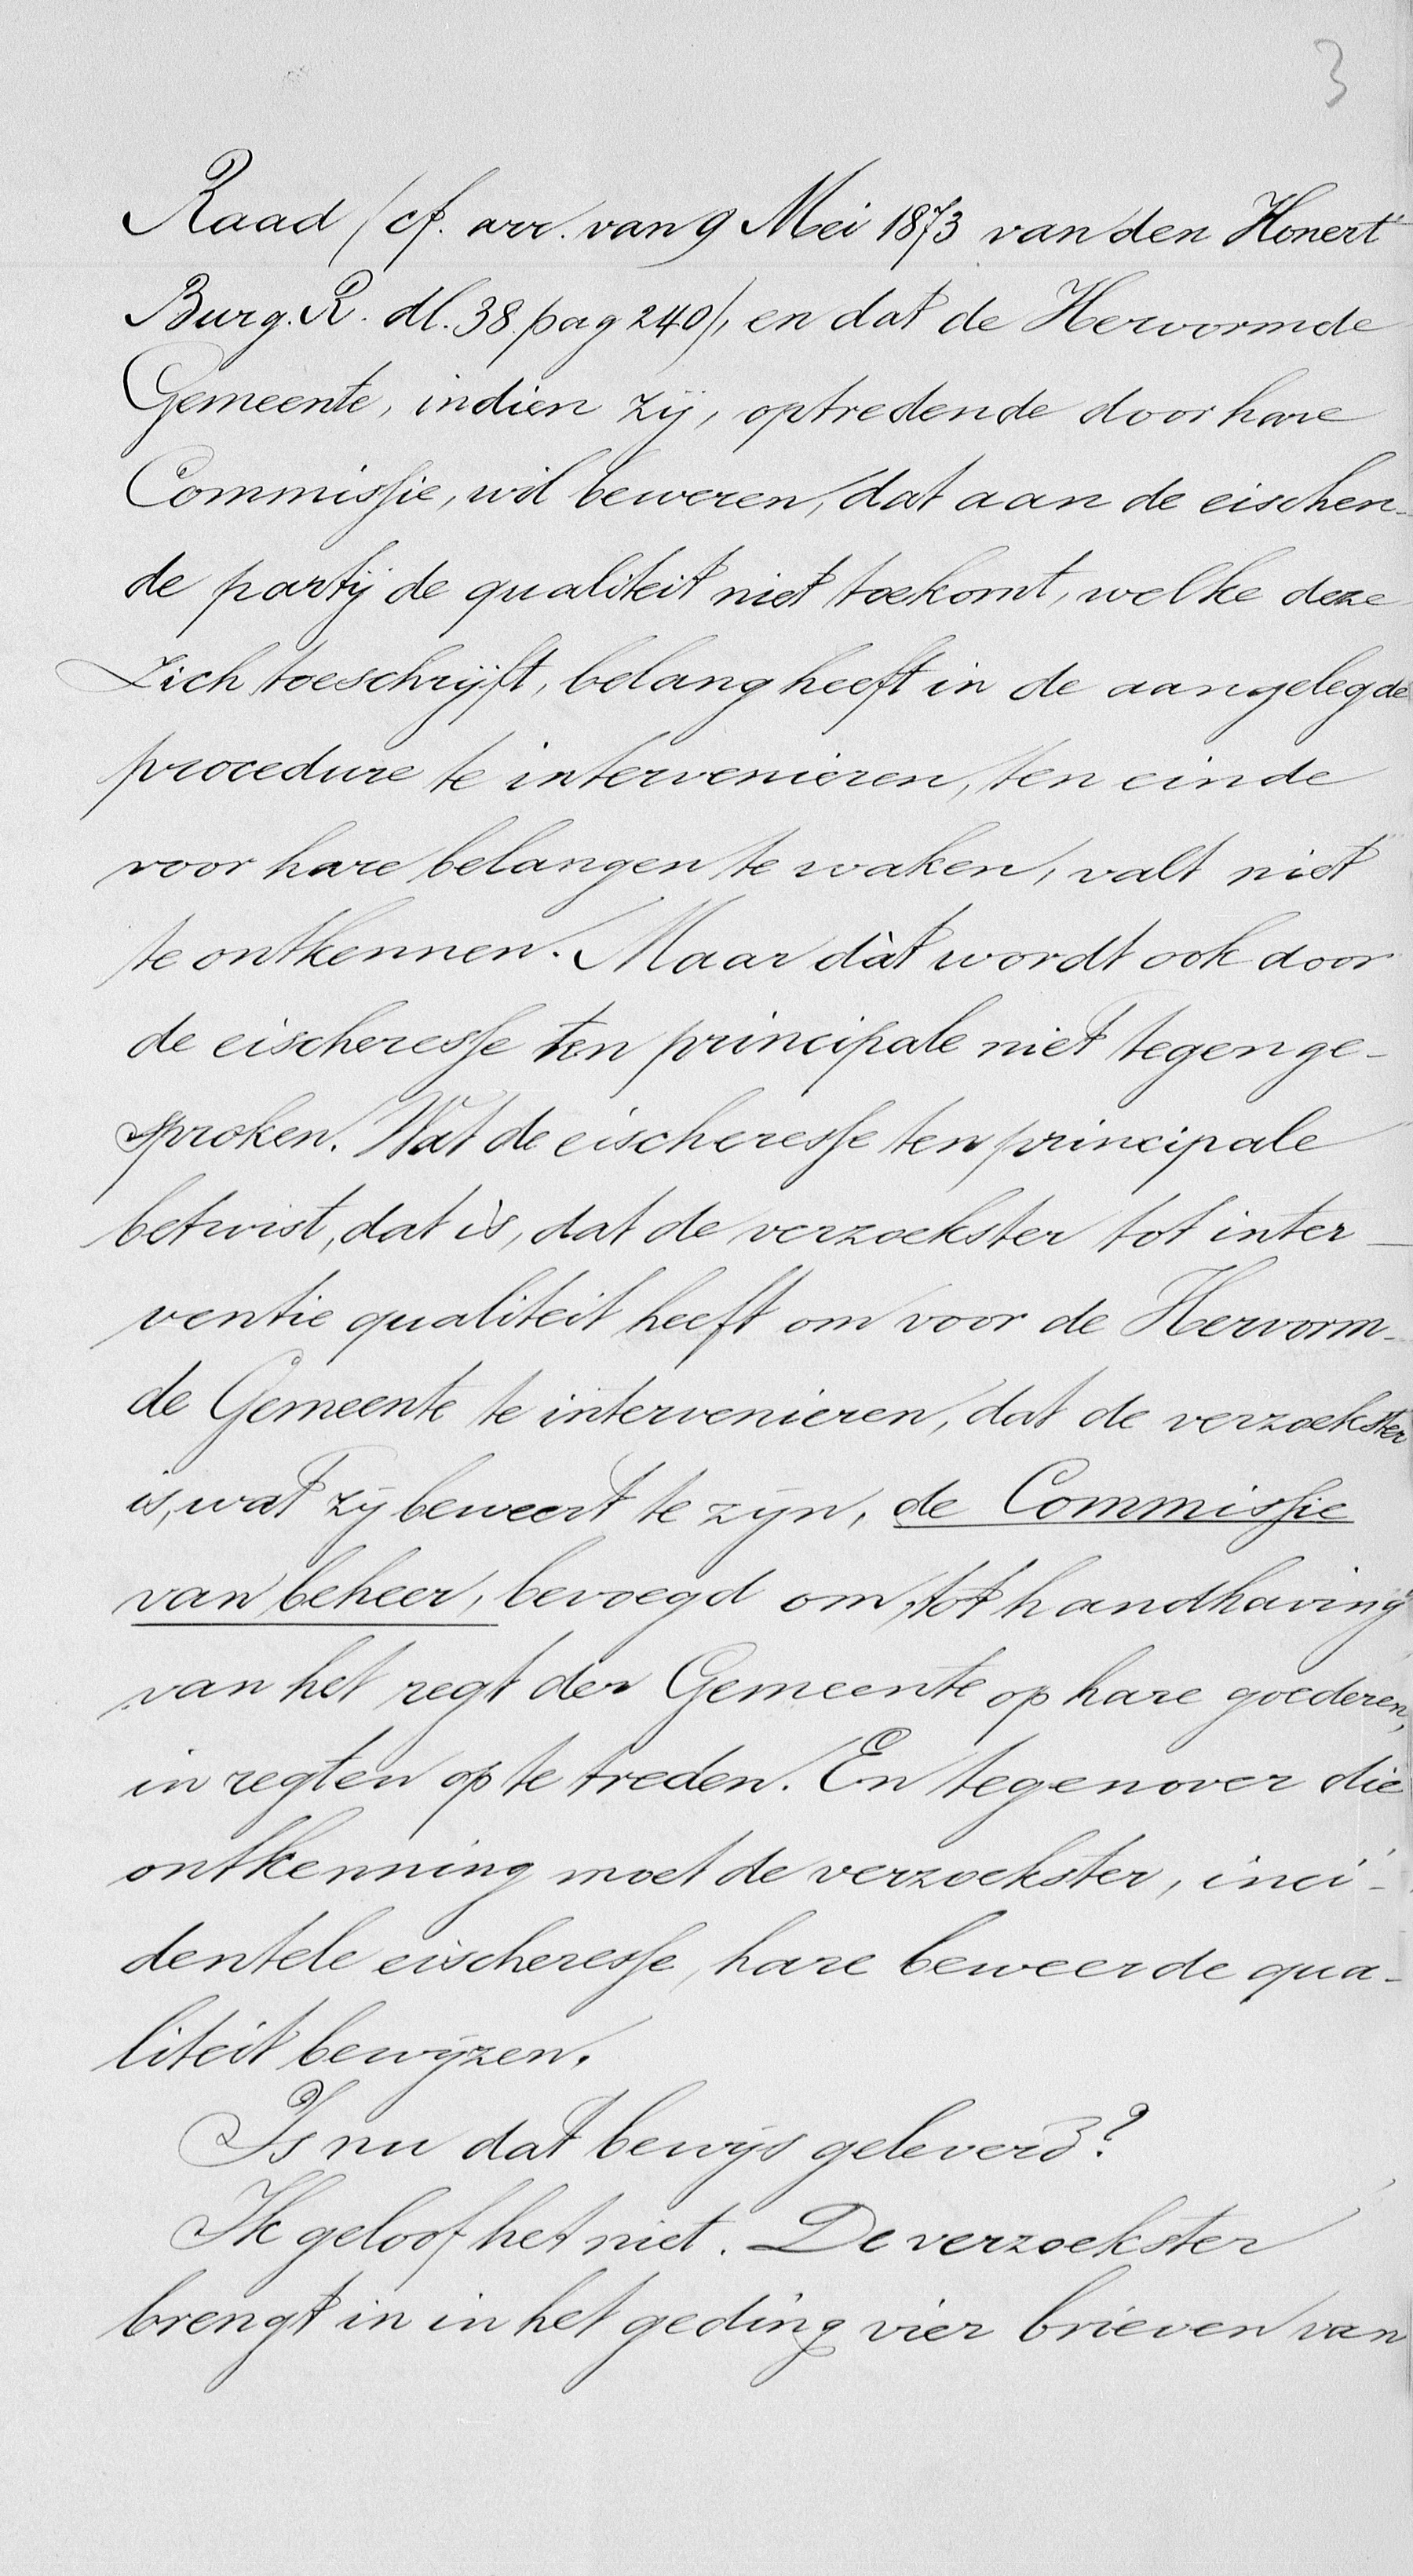 3
Raad (cf. arr. van 9 Mei 1873 van den Honert
Burg. R. dl. 38. pag 240), en dat de Hervormde
Gemeente, indien zij, optredende door hare
Commissie, wil beweren, dat aan de eischen-
de partij de qualiteit niet toekomt, welke deze
zich toeschrijft, belang heeft in de aangelegde
procedure te intervenieren, ten einde
voor hare belangen te waken, valt niet
te ontkennen. Maar dàt wordt ook door
de eischeresse ten principale niet tegenge-
sproken. Wat de eischeresse ten principale
betwist, dat is, dat de verzoekster tot inter-
ventie qualiteit heeft om voor de Hervorm-
de Gemeente te intervenieren, dat de verzoekster
is, wat zij beweert te zijn, de Commissie
van beheer, bevoegd om, tot handhaving
van het regt der Gemeente op hare goederen,
in regten op te treden. En tegenover die
ontkenning moet de verzoekster, inci-
dentele eischeresse, hare beweerde qua-
liteit bewijzen.
Is nu dat bewijs geleverd?
Ik geloof het niet. De verzoekster
brengt in in het geding vier brieven van